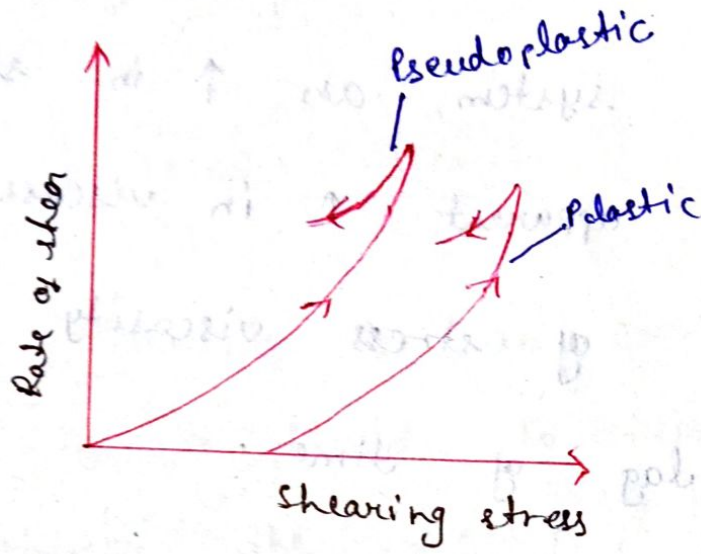 Pseudoplastic
Pdastic
Rate of shear
Shearing stress